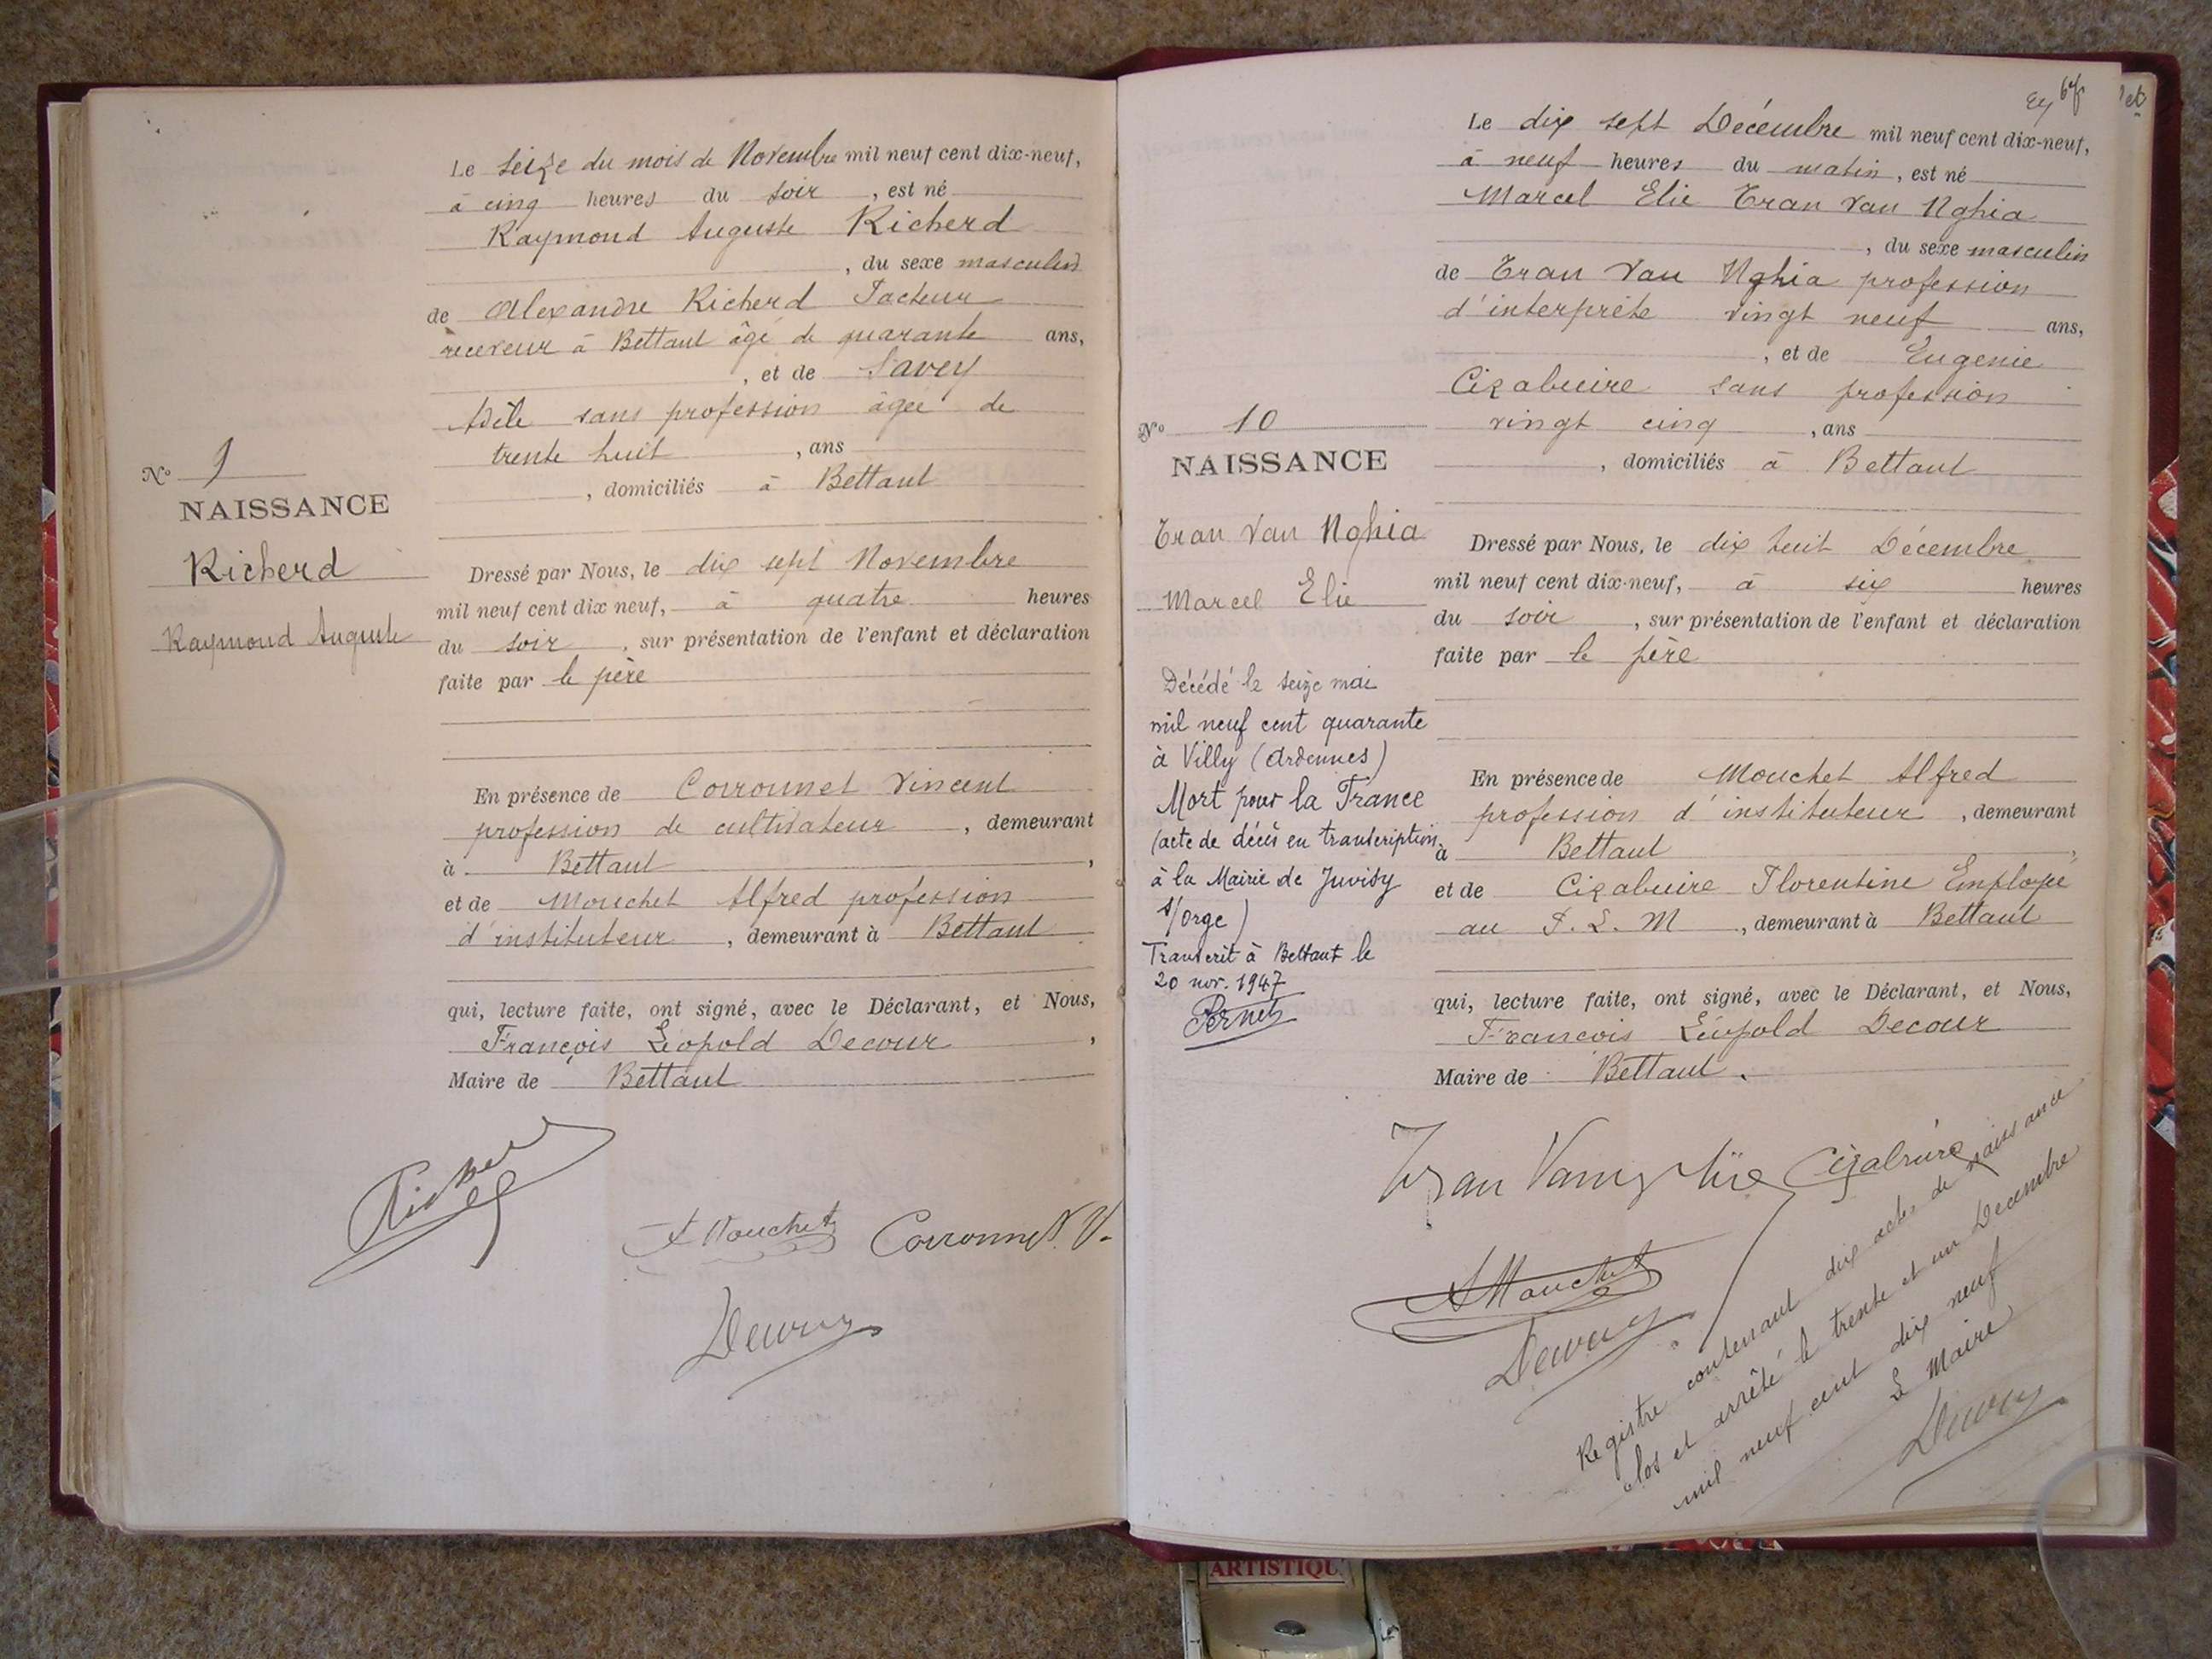 Le seize du mois de Novembre mil neuf cent dix-neuf,
à cinq heures du soir, est né
Raymond Auguste Richerd
, du sexe masculin
de Alexandre Richerd Facteur
receveur à Bettant âgé de quarante ans,
, et de Savey
Adèle sans profession âgée de
trente huit, ans
, domiciliés à Bettant
N° 9
NAISSANCE
Richerd
Raymond Auguste
Dressé par Nous, le dix sept Novembre
mil neuf cent dix neuf, à quatre heures
du soir, sur présentation de l'enfant et déclaration
faite par le père
En présence de Corronnet Vincent
profession de cultivateur, demeurant
à Bettant,
et de Mouchet Alfred profession
d'instituteur, demeurant à Bettant
qui, lecture faite, ont signé, avec le Déclarant, et Nous,
François Léopold Decour,
Maire de Bettant
Richerd
A Mouchet Corronnet V.
Decour
67
Le dix sept Décembre mil neuf cent dix-neuf,
à neuf heures du matin, est né
Marcel Elie Tran Van Nghia
, du sexe masculin
de Tran Van Nghia profession
d'interprète vingt neuf ans,
, et de Eugenie
Cizabuire sans profession
vingt cinq, ans
, domiciliés à Bettant
N° 10
NAISSANCE
Tran Van Nghia
Marcel Elie
Décédé le seize mai
mil neuf cent quarante
à Villy (Ardennes)
Mort pour la France
(acte de décès en transcription
à la Mairie de Juvisy
s/orge)
Transcrit à Bettant le
20 nov. 1947
Pernet
Dressé par Nous, le dix huit Décembre
mil neuf cent dix-neuf, à six heures
du soir, sur présentation de l'enfant et déclaration
faite par le père
En présence de Mouchet Alfred
profession d'instituteur, demeurant
à Bettant,
et de Cizabuire Florentine Employée
au P. L. M, demeurant à Bettant
qui, lecture faite, ont signé, avec le Déclarant, et Nous,
François Léopold Decour
Maire de Bettant.
Tran Van Cizabuire
A Mouchet
Decour
Registre contenant dix actes de naissance
clos et arrêté le trente et un Décembre
mil neuf cent dix neuf
Le Maire
Decour
ARTISTIQU